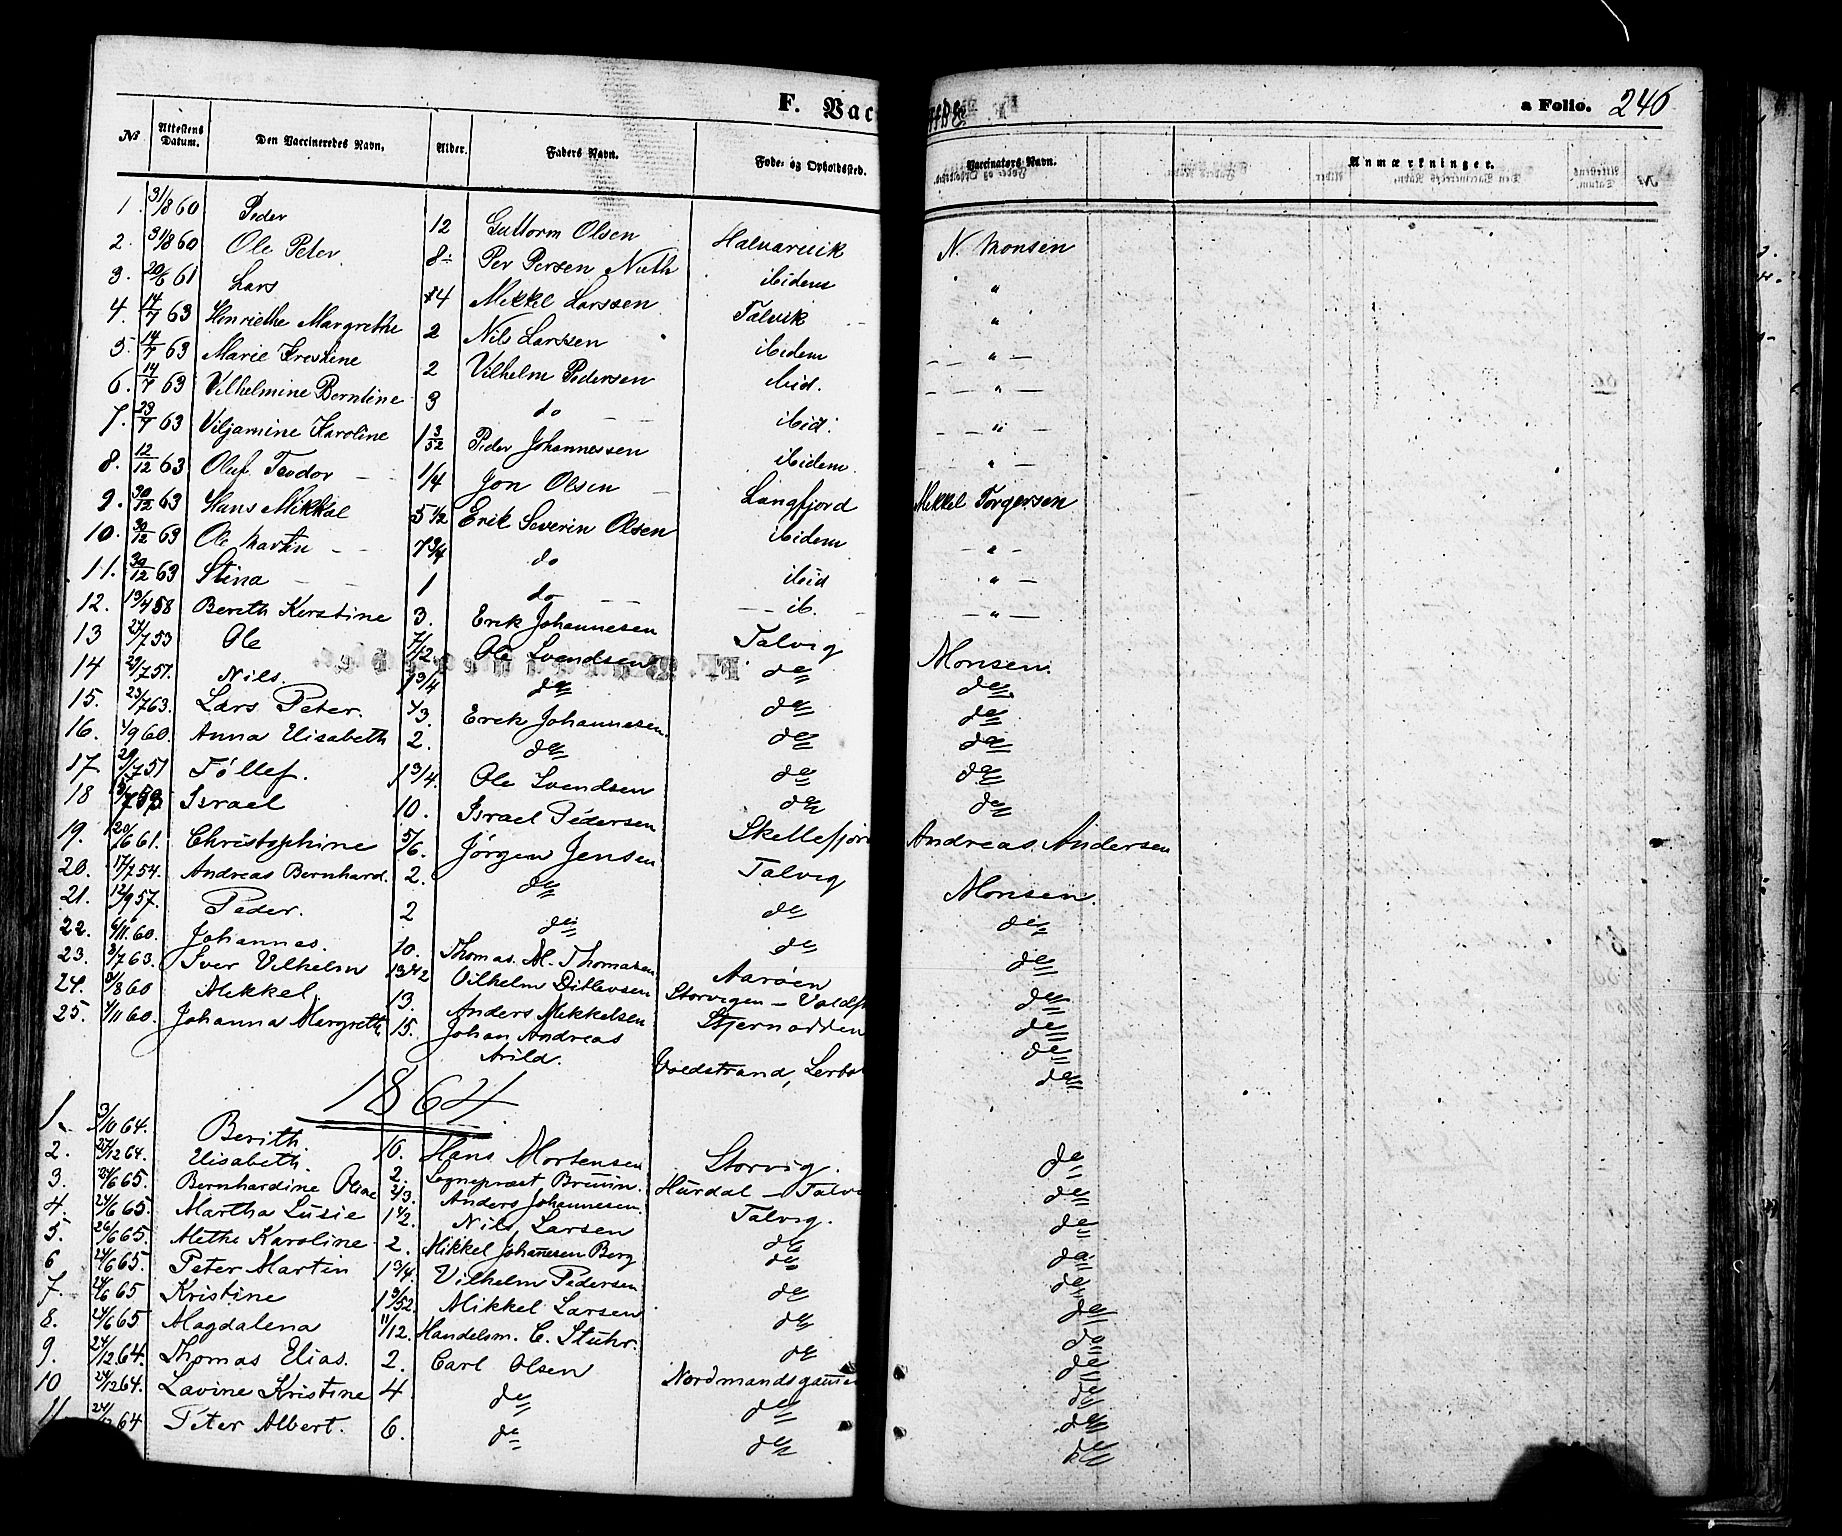 F. Vac
a Folio. 246
No Attestens Datum. Den Vaccineredes Navn. Alder. Faders Navn. Føde- og Opholdssted. Vaccinators Navn. Anmærkninger.
1. 31/8 60 Peder 12 Guttorm Olsen Halvarvik N. Monsen
2. 31/8 60 Ole Peter 8 Per Persen Nuth ibidem "
3. 20/6 61 Lars 4 Mikkel Larssen Talvik "
4. 14/7 63 Henriethe Margrethe 2 Nils Larssen ibidem "
5. 14/7 63 Marie Krestine 2 Vilhelm Pedersen ibid. "
6. 14/7 63 Vilhelmine Berntine 3 do ibid. "
7. 23/7 63 Viljamine Karoline 1 3/52 Peder Johannessen ibidem. "
8. 12/12 63 Oluf Teodor 1/4 Jon Olsen Langfjord Mikkel Torgersen
9. 30/12 63 Hans Mikkal 5 1/2 Erik Severin Olsen ibidem "
10. 30/12 63 Ole Martin 7 3/4 do ibid "
11. 30/12 63 Stina 1 do ib. "
12. 13/4 58 Bereth Kerstine 3. Erik Johannesen Talvig Monsen.
13 27/7 53 Ole 7/12. Ole Svendsen do do
14 29/7 57. Nils. 1 3/4 do do do
15. 23/7 63. Lars Peter. 1/3. Erek Johannesen do do
16. 4/9 60. Anna Elisabeth 2. do do do
17 29/7 57 Tøllef. 1 3/4. Ole Svendsen do do
18 Israel 10. Israel Pedersen Skellefjor Andreas Andersen
19. 20/6 61. Christophine 5/6. Jørgen Jensen Talvig Monsen.
20. 17/7 54. Andreas Bernhard. 2. do do do
21. 12/9 57. Peder. 2 do do do
22. 6/11 60. Johannes. 10. Thomas M. Thomasen Aarøen do
23. 3/7 63. Iver Vilhelm Vilhelm Ditlevsen Storvigen - do
24. 31/8 60 Mikkel. 13. Anders Mikkelsen Stjernodden do
25. 4/11 60. Johanna Margreth 15. Johan Andreas
Arild. Voldstrand, do
1864
1. 3/10 64. Berith 16. Hans Mortensen Storvig. do
2. 27/12 64. Elisabeth. 2. Sognepræst Bruun. Hurdal - Talv do
3. 24/6 65. Bernhardine Oline 2/3. Anders Johannesen. Talvig. do
4. 24/6 65. Martha Lusie 1 1/2. Nils Larsen do do
5. 26/6 65. Methe Karoline 2. Mikkel Johannesen Berg do do
6 24/6 65. Peter Martin 1 3/4. Vilhelm Pedersen do do
7. 24/6 65 Kristine 1 3/52. Mikkel Larsen do do
8. 24/6 65 Magdalena 11/12. Handelsm. C. Stuhr. do do
9. 24/12 64. Thomas Elias. 2. Carl Olsen Nordmands do
10 24/12 64. Lavine Kristine 4 do do do
11. 24/12 64 Peter Albert. 6. do do do